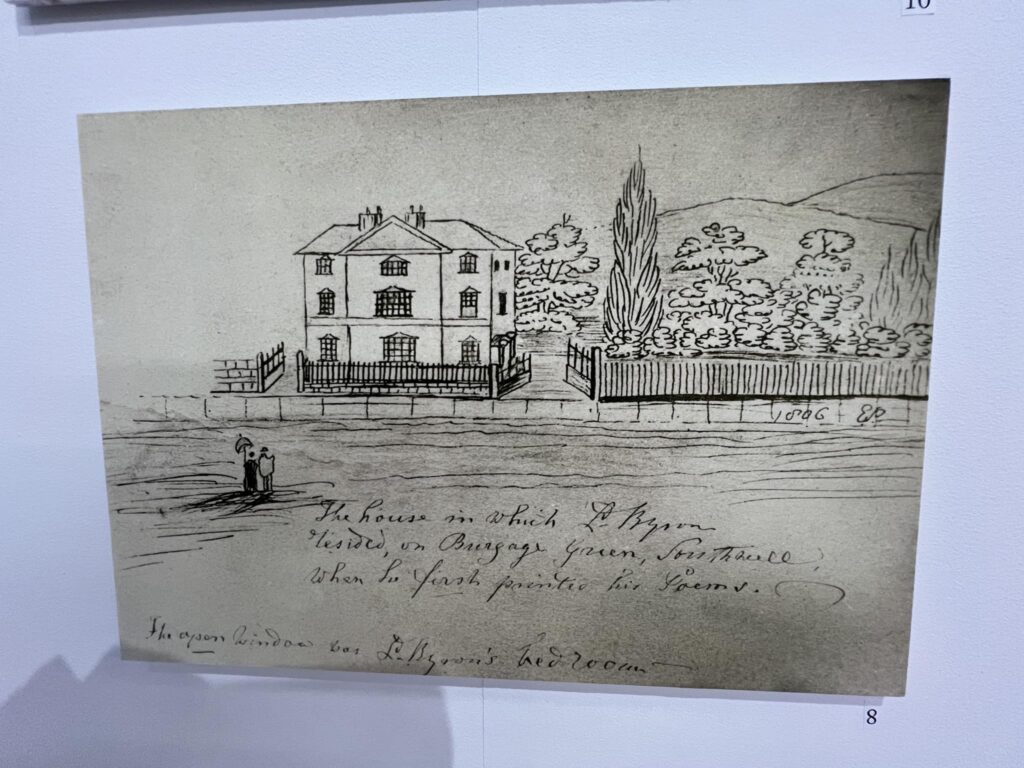 10
1806 ER
The house in which Ld Byron
resided, on Burgage Green, Southwell,
when he first printed his Poems.
The open window was Ld. Byron's bedroom
8